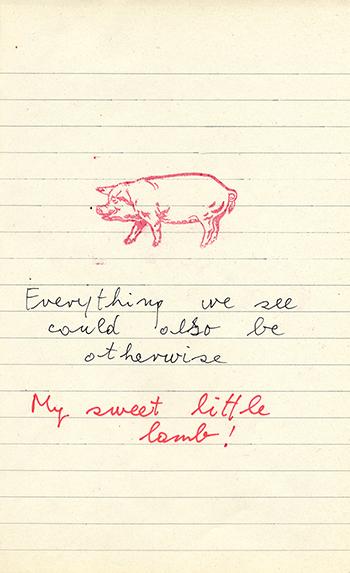 Everything we see
could also be
otherwise
My sweet little
lamb!